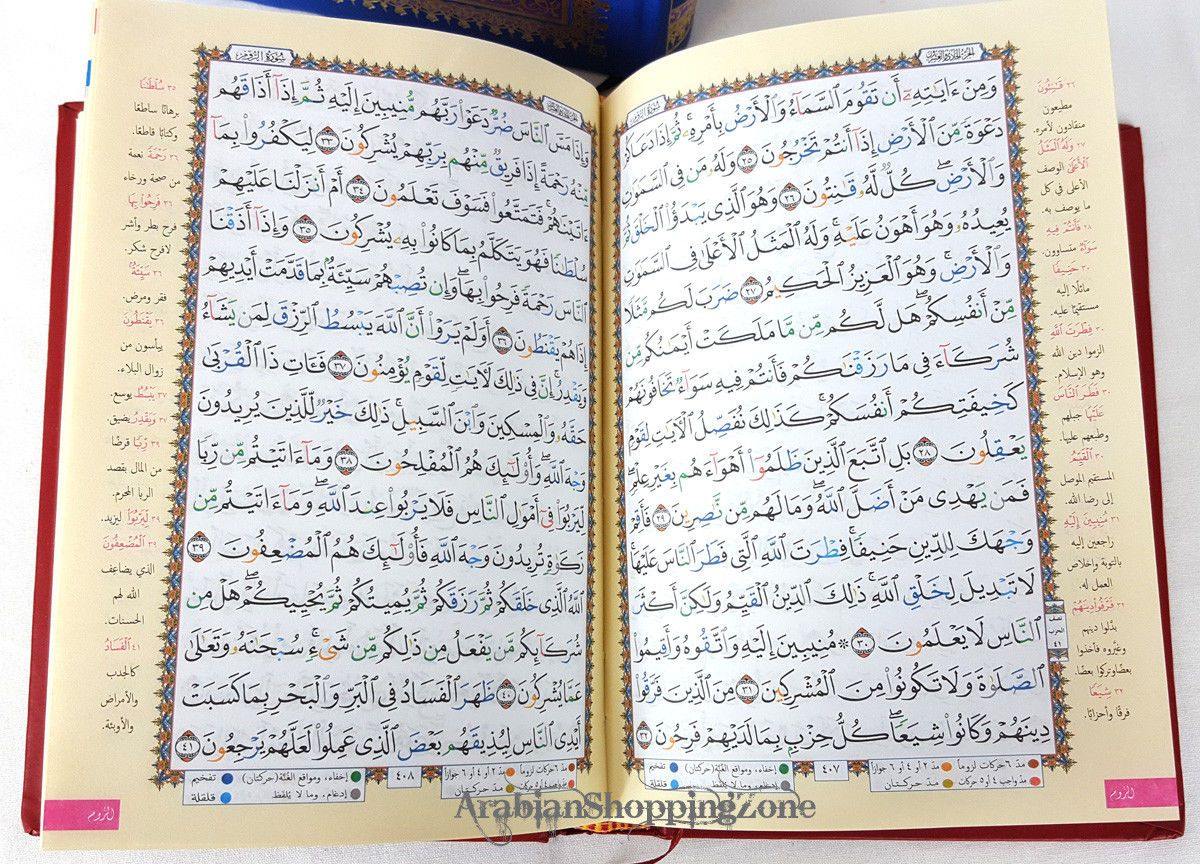 الجزء الحادي والعشرون
سورة الروم
وَمِنْ ءَايَٰتِهِۦٓ أَن تَقُومَ ٱلسَّمَآءُ وَٱلْأَرْضُ بِأَمْرِهِۦۚ ثُمَّ إِذَا دَعَاكُمْ
دَعْوَةً مِّنَ ٱلْأَرْضِ إِذَآ أَنتُمْ تَخْرُجُونَ ٢٥ وَلَهُۥ مَن فِى ٱلسَّمَٰوَٰتِ
وَٱلْأَرْضِۖ كُلٌّ لَّهُۥ قَٰنِتُونَ ٢٦ وَهُوَ ٱلَّذِى يَبْدَؤُا۟ ٱلْخَلْقَ ثُمَّ
يُعِيدُهُۥ وَهُوَ أَهْوَنُ عَلَيْهِۚ وَلَهُ ٱلْمَثَلُ ٱلْأَعْلَىٰ فِى ٱلسَّمَٰوَٰتِ
وَٱلْأَرْضِۚ وَهُوَ ٱلْعَزِيزُ ٱلْحَكِيمُ ٢٧ ضَرَبَ لَكُم مَّثَلًا
مِّنْ أَنفُسِكُمْۖ هَل لَّكُم مِّن مَّا مَلَكَتْ أَيْمَٰنُكُم مِّن
شُرَكَآءَ فِى مَا رَزَقْنَٰكُمْ فَأَنتُمْ فِيهِ سَوَآءٌ تَخَافُونَهُمْ
كَخِيفَتِكُمْ أَنفُسَكُمْۚ كَذَٰلِكَ نُفَصِّلُ ٱلْءَايَٰتِ لِقَوْمٍ
يَعْقِلُونَ ٢٨ بَلِ ٱتَّبَعَ ٱلَّذِينَ ظَلَمُوٓا۟ أَهْوَآءَهُم بِغَيْرِ عِلْمٍۖ
فَمَن يَهْدِى مَنْ أَضَلَّ ٱللَّهُۖ وَمَا لَهُم مِّن نَّٰصِرِينَ ٢٩ فَأَقِمْ
وَجْهَكَ لِلدِّينِ حَنِيفًاۚ فِطْرَتَ ٱللَّهِ ٱلَّتِى فَطَرَ ٱلنَّاسَ عَلَيْهَاۚ
لَا تَبْدِيلَ لِخَلْقِ ٱللَّهِۚ ذَٰلِكَ ٱلدِّينُ ٱلْقَيِّمُ وَلَٰكِنَّ أَكْثَرَ
ٱلنَّاسِ لَا يَعْلَمُونَ ٣٠ ۞ مُنِيبِينَ إِلَيْهِ وَٱتَّقُوهُ وَأَقِيمُوا۟
ٱلصَّلَوٰةَ وَلَا تَكُونُوا۟ مِنَ ٱلْمُشْرِكِينَ ٣١ مِنَ ٱلَّذِينَ فَرَّقُوا۟
دِينَهُمْ وَكَانُوا۟ شِيَعًاۖ كُلُّ حِزْبٍۭ بِمَا لَدَيْهِمْ فَرِحُونَ ٣٢
٢٦ قَٰنِتُونَ
مطيعون
منقادون لأمره.
٢٧ وَلَهُ ٱلْمَثَلُ
ٱلْأَعْلَىٰ الوصف
الأعلى في كل
ما يوصف به.
٢٨ فَأَنتُمْ فِيهِ
سَوَآءٌ متساوون.
٣٠ حَنِيفًا
مائلًا إليه
مستقيمًا عليه.
٣٠ فِطْرَتَ ٱللَّهِ
الزموا دين الله
وهو الإسلام.
٣٠ فَطَرَ ٱلنَّاسَ
عَلَيْهَا جبلهم
وطبعهم عليها.
٣٠ ٱلْقَيِّمُ
المستقيم الموصل
إلى رضا الله.
٣١ مُنِيبِينَ إِلَيْهِ
راجعين إليه
بالتوبة وإخلاص
العمل له.
٣٢ فَرَّقُوا۟ دِينَهُمْ
بدّلوا دينهم
وغيّروه فأخذوا
بعضًا وتركوا بعضًا.
٣٢ شِيَعًا
فرقًا وأحزابًا.
نصف
الحزب
٤١
مدّ ٦ حركات لزوماً مدّ ٢ أو ٤ أو ٦ جوازاً
مدّ واجب ٤ أو ٥ حركات مدّ حركتان
٤٠٧
إخفاء، ومواقع الغُنَّة (حركتان) تفخيم
إدغام، وما لا يُلفَظ قلقلة
الرُّوم
سورة الروم
وَإِذَا مَسَّ ٱلنَّاسَ ضُرٌّ دَعَوْا۟ رَبَّهُم مُّنِيبِينَ إِلَيْهِ ثُمَّ إِذَآ أَذَاقَهُم
مِّنْهُ رَحْمَةً إِذَا فَرِيقٌ مِّنْهُم بِرَبِّهِمْ يُشْرِكُونَ ٣٣ لِيَكْفُرُوا۟ بِمَآ
ءَاتَيْنَٰهُمْۚ فَتَمَتَّعُوا۟ فَسَوْفَ تَعْلَمُونَ ٣٤ أَمْ أَنزَلْنَا عَلَيْهِمْ
سُلْطَٰنًا فَهُوَ يَتَكَلَّمُ بِمَا كَانُوا۟ بِهِۦ يُشْرِكُونَ ٣٥ وَإِذَآ أَذَقْنَا
ٱلنَّاسَ رَحْمَةً فَرِحُوا۟ بِهَاۖ وَإِن تُصِبْهُمْ سَيِّئَةٌۢ بِمَا قَدَّمَتْ أَيْدِيهِمْ
إِذَا هُمْ يَقْنَطُونَ ٣٦ أَوَلَمْ يَرَوْا۟ أَنَّ ٱللَّهَ يَبْسُطُ ٱلرِّزْقَ لِمَن يَشَآءُ
وَيَقْدِرُۚ إِنَّ فِى ذَٰلِكَ لَءَايَٰتٍ لِّقَوْمٍ يُؤْمِنُونَ ٣٧ فَـَٔاتِ ذَا ٱلْقُرْبَىٰ
حَقَّهُۥ وَٱلْمِسْكِينَ وَٱبْنَ ٱلسَّبِيلِۚ ذَٰلِكَ خَيْرٌ لِّلَّذِينَ يُرِيدُونَ
وَجْهَ ٱللَّهِۖ وَأُو۟لَٰٓئِكَ هُمُ ٱلْمُفْلِحُونَ ٣٨ وَمَآ ءَاتَيْتُم مِّن رِّبًا
لِّيَرْبُوَا۟ فِىٓ أَمْوَٰلِ ٱلنَّاسِ فَلَا يَرْبُوا۟ عِندَ ٱللَّهِۖ وَمَآ ءَاتَيْتُم مِّن
زَكَوٰةٍ تُرِيدُونَ وَجْهَ ٱللَّهِ فَأُو۟لَٰٓئِكَ هُمُ ٱلْمُضْعِفُونَ ٣٩
ٱللَّهُ ٱلَّذِى خَلَقَكُمْ ثُمَّ رَزَقَكُمْ ثُمَّ يُمِيتُكُمْ ثُمَّ يُحْيِيكُمْۖ هَلْ مِن
شُرَكَآئِكُم مَّن يَفْعَلُ مِن ذَٰلِكُم مِّن شَىْءٍۚ سُبْحَٰنَهُۥ وَتَعَٰلَىٰ
عَمَّا يُشْرِكُونَ ٤٠ ظَهَرَ ٱلْفَسَادُ فِى ٱلْبَرِّ وَٱلْبَحْرِ بِمَا كَسَبَتْ
أَيْدِى ٱلنَّاسِ لِيُذِيقَهُم بَعْضَ ٱلَّذِى عَمِلُوا۟ لَعَلَّهُمْ يَرْجِعُونَ ٤١
٣٥ سُلْطَٰنًا
برهانًا ساطعًا
وكتابًا قاطعًا.
٣٦ رَحْمَةً نعمة
من صحة ورخاء
٣٦ فَرِحُوا۟ بِهَا
فرح بطر وأشر
لا فرح شكر.
٣٦ سَيِّئَةٌ
فقر ومرض.
٣٦ يَقْنَطُونَ
ييأسون من
زوال البلاء.
٣٧ يَبْسُطُ يوسع.
٣٧ وَيَقْدِرُ يضيق.
٣٩ رِّبًا قرضًا
من المال بقصد
الربا المحرم.
٣٩ لِّيَرْبُوَا۟ ليزيد.
٣٩ ٱلْمُضْعِفُونَ
الذي يضاعف
الله لهم
الحسنات.
٤١ ٱلْفَسَادُ
كالجدب
والأمراض
والأوبئة.
مدّ ٦ حركات لزوماً مدّ ٢ أو ٤ أو ٦ جوازاً
مدّ حركتان
٤٠٨
إخفاء، ومواقع الغُنَّة (حركتان) تفخيم
إدغام، وما لا يُلفَظ قلقلة
الرُّوم
ArabianShoppingZone